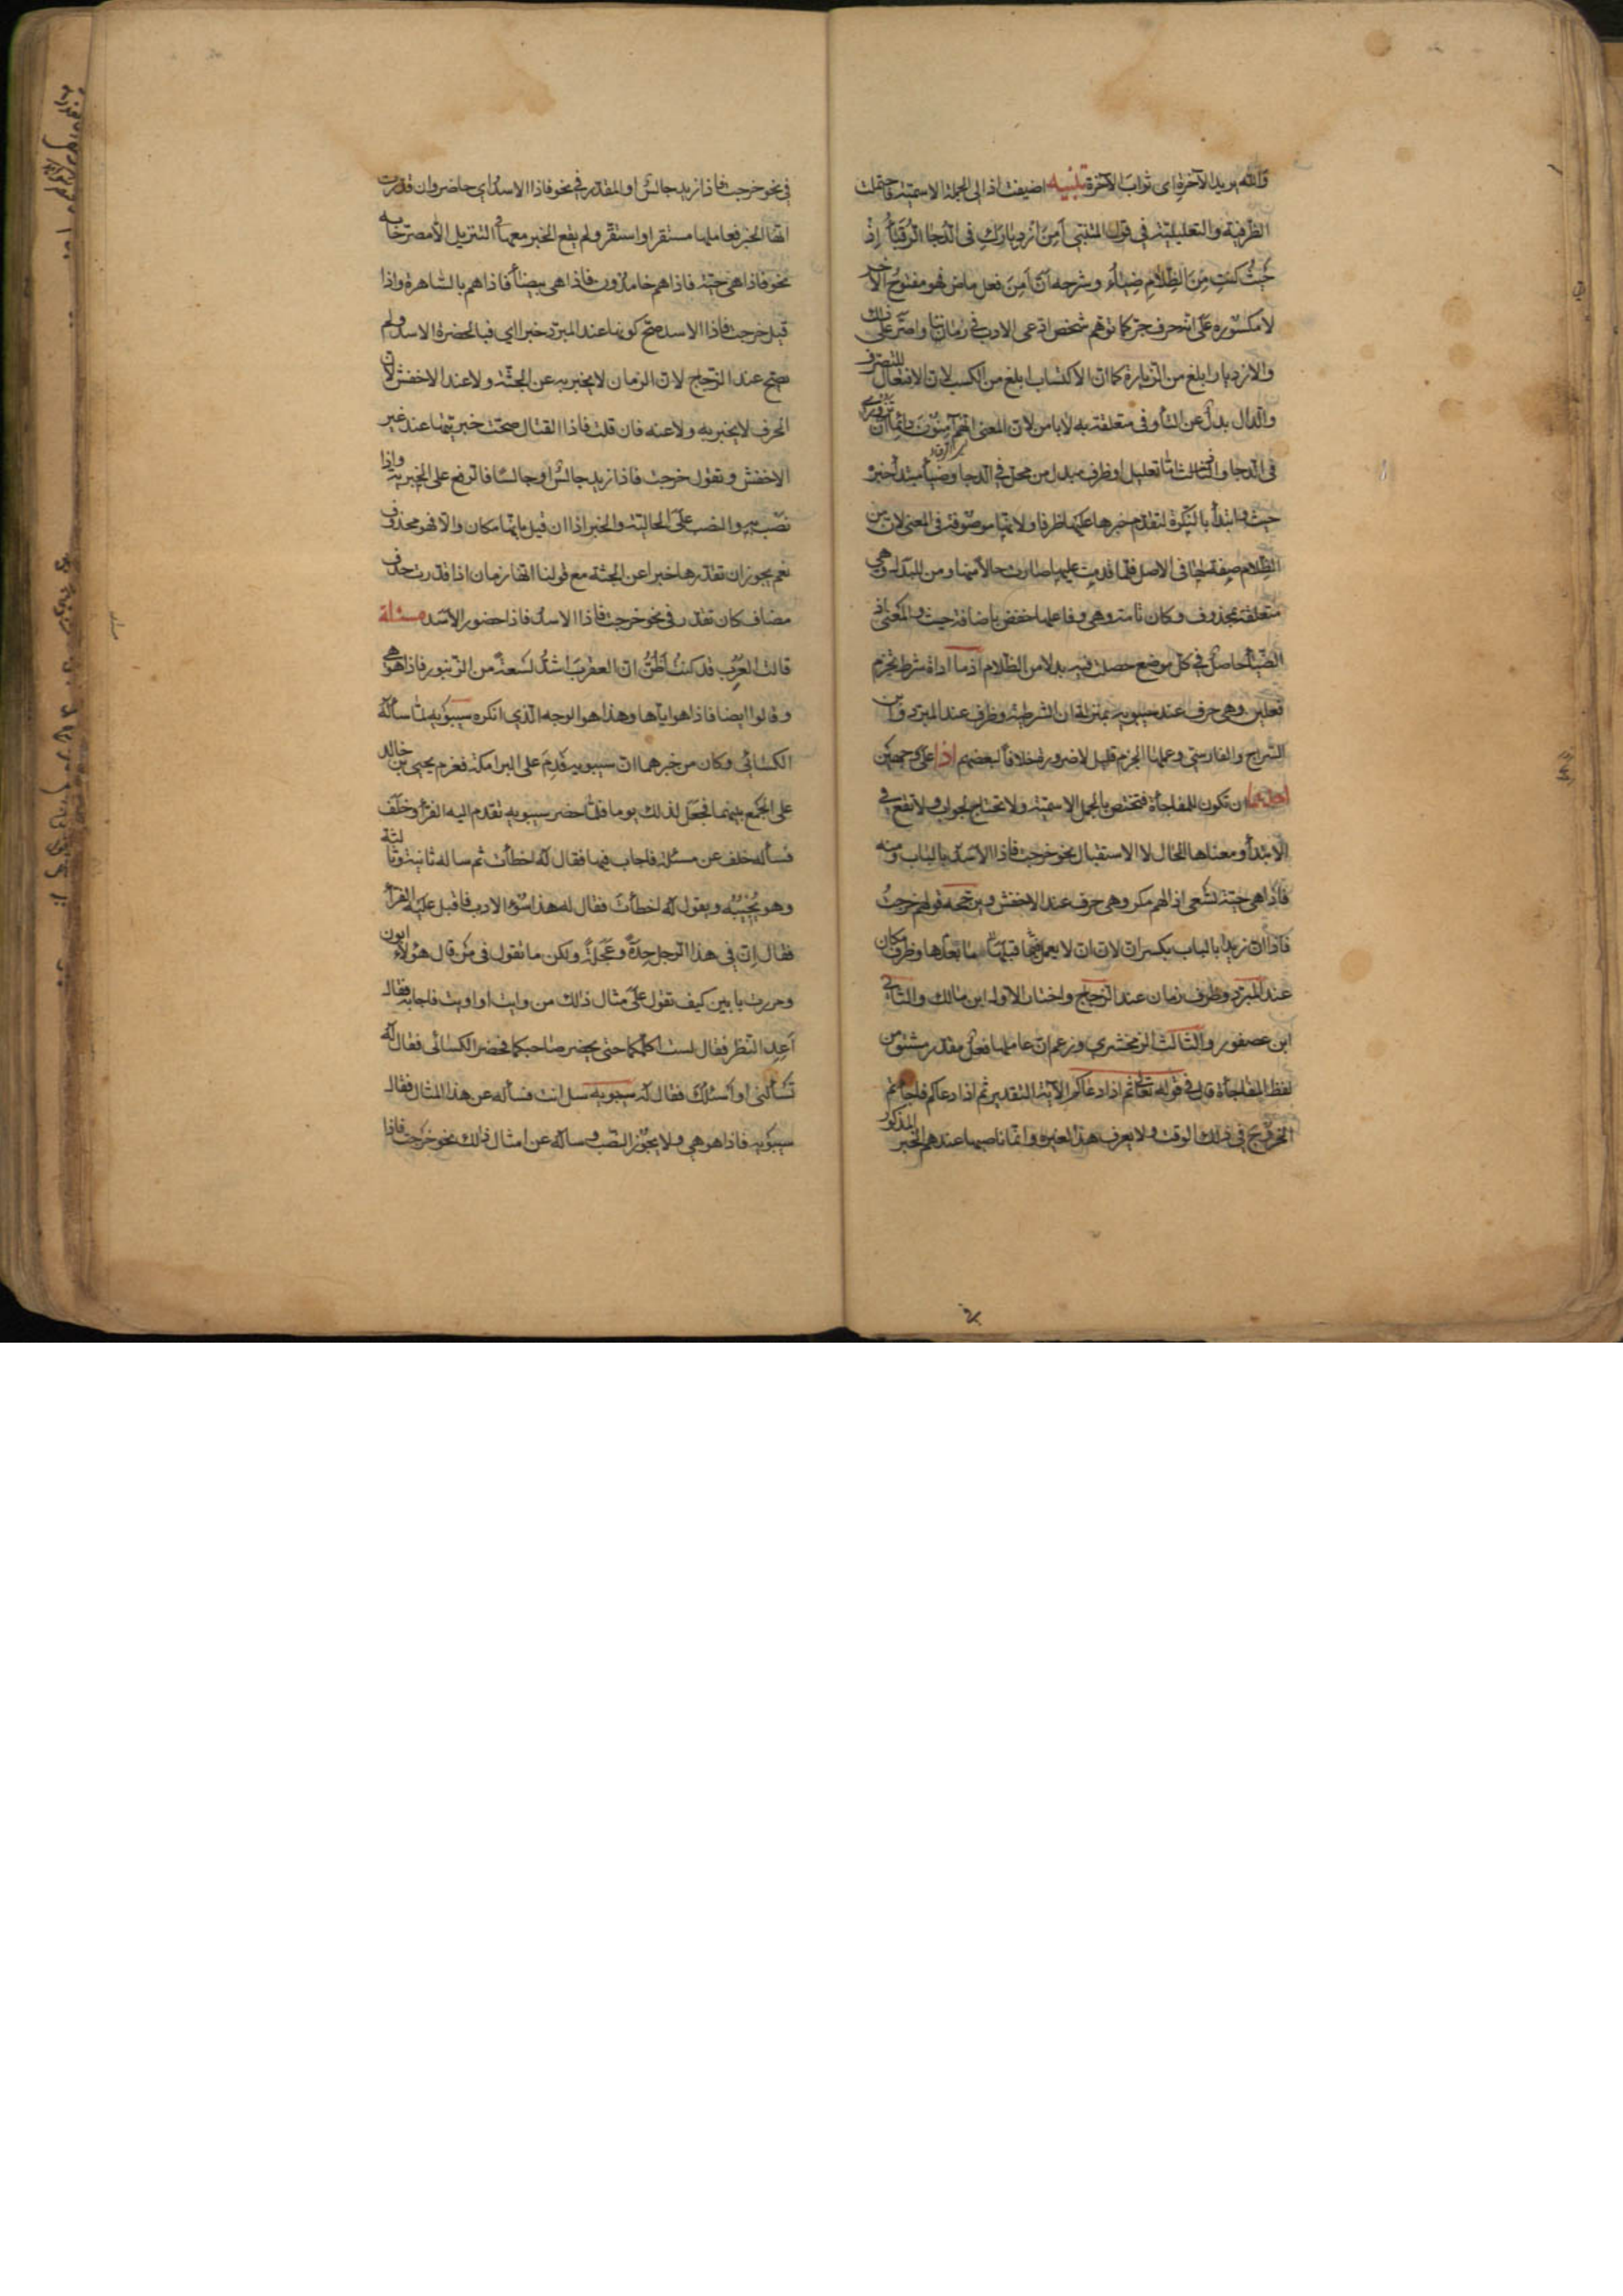 والله يريد الآخرة اى ثواب الآخرة تنبيه اضيفت اذ الى الجملة الاسمية فاحتملت
الظرفية والتعليلية في قول المتنبى اَمِنَ ازديارَكِ فى الدجا الرقباءُ إذ
حَيثُ كنتِ مِنَ الظلامِ ضياءُ وشرحه انّ اَمِنَ فعل ماض فهو مفتوح الآخر
لا مكسوره على انه حرف جر كما توهم شخص ادعى الادب في زماننا واصرّ على ذلك
والازديار ابلغ من الزيارة كما ان الاكتساب ابلغ من الكسب لان الافتعال للتصرف
والدال بدل عن التاء وفى متعلقة به لا بامن لان المعنى انهم آمنون دائما ان تزورى
فى الدجا واذ اما تعليل او ظرف مبدل من محل في الدجا وضياء مبتدأ خبره
حيث وابتدأ بالنكرة لتقدم خبرها عليها ظرفا ولانها موصوفة فى المعنى لان من
الظلام صفة لها فى الاصل فلما قدمت عليها صارت حالا منها ومن للبدل وهى
متعلقة بمحذوف وكان تامة وهى وفاعلها خفض باضافة حيث والمعنى اذ
الضياء حاصل في كل موضع حصلت فيه بدلا من الظلام اذما اداة شرط تجزم
فعلين وهى حرف عند سيبويه بمنزلة ان الشرطية وظرف عند المبرد وابن
السراج والفارسى وعملها الجزم قليل لا ضرورة خلافا لبعضهم اذا على وجهين
احدهما ان تكون للمفاجأة فتختص بالجمل الاسمية ولا تحتاج لجواب ولا تقع في
الابتداء ومعناها الحال لا الاستقبال نحو خرجت فاذا الاسد بالباب ومنه
فاذا هى حية تسعى اذا لهم مكر وهى حرف عند الاخفش ويرجحه قولهم خرجتُ
فاذا ان زيدا بالباب بكسر ان لان ان لا يعمل ما بعدها فيما قبلها وظرف مكان
عند المبرد وظرف زمان عند الزجاج واختار الاول ابن مالك والثانى
ابن عصفور والثالث الزمخشري وزعم ان عاملها فعل مقدر مشتق من
لفظ المفاجأة قال في قوله تعالى ثم اذا دعاكم الآية التقدير ثم اذا دعاكم فاجأتم
الخروج في ذلك الوقت ولا يعرف هذا لغيره وانما ناصبها عندهم الخبر المذكور
في نحو خرجت فاذا زيد جالس او المقدر في نحو فاذا الاسد اي حاضر وان قدرت
انها الخبر فعاملها مستقر او استقر ولم يقع الخبر معها في التنزيل الا مصرحا به
نحو فاذا هى حية فاذا هم خامدون فاذا هى بيضاء فاذا هم بالساهرة واذا
قيل خرجت فاذا الاسد صح كونها عند المبرد خبرا اي فبالحضرة الاسد ولم
يصح عند الزجاج لان الزمان لا يخبر به عن الجثة ولا عند الاخفش لان
الحرف لا يخبر به ولا عنه فان قلت فاذا القتال صحت خبريتها عند غير
الاخفش وتقول خرجت فاذا زيد جالس او جالسا فالرفع على الخبرية واذا
نصب به والنصب على الحالية والخبر اذا ان قيل بانها مكان والا فهو محذوف
نعم يجوز ان تقدرها خبرا عن الجثة مع قولنا انها زمان اذا قدرت حذف
مضاف كان تقدر في نحو خرجت فاذا الاسد فاذا حضور الاسد مسئلة
قالت العرب قد كنت اظن ان العقرب اشد لسعة من الزنبور فاذا هو هى
وقالوا ايضا فاذا هو اياها وهذا هو الوجه الذي انكره سيبويه لما سأله
الكسائى وكان من خبرهما ان سيبويه قدم على البرامكة فعزم يحيى بن خالد
على الجمع بينهما فجعل لذلك يوما فلما حضر سيبويه تقدم اليه الفراء وخلف
فسأله خلف عن مسئلة فاجاب فيها فقال له اخطأت ثم ساله ثانية وثالثة
وهو يجيبه ويقول له اخطأت فقال له هذا سوء الادب فاقبل عليه الفراء
فقال إن في هذا الرجل حدة وعجلة ولكن ما تقول فى من قال هؤلاء ابون
ومررت بابين كيف تقول على مثال ذلك من وايت او اويت فاجابه فقال
اَعِدِ النظر فقال لست اكلمكما حتى يحضر صاحبكما فحضر الكسائى فقال له
تسألنى او أسئلك فقال له سيبويه سل انت فسأله عن هذا المثال فقال
سيبويه فاذا هو هي ولا يجوز النصب وساله عن امثال ذلك نحو خرجت فاذا